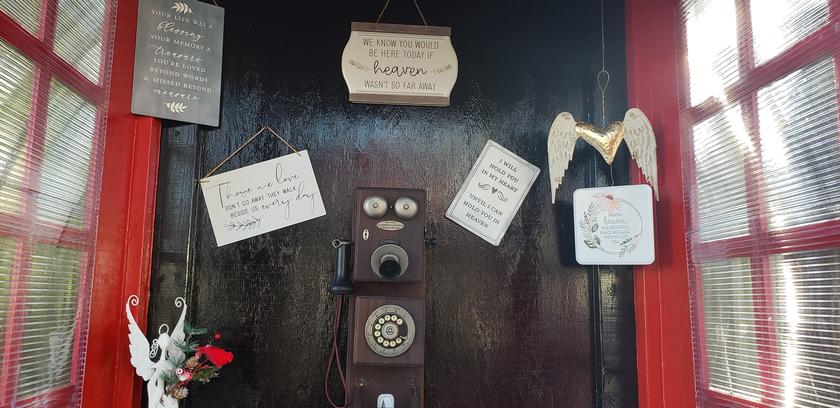 YOUR LIFE WAS A
blessing
YOUR MEMORY A
treasure
YOU'RE LOVED
BEYOND WORDS
& MISSED BEYOND
measure
WE KNOW YOU WOULD
BE HERE TODAY IF
heaven
WASN'T SO FAR AWAY
Those we love
DON'T GO AWAY THEY WALK
BESIDE US every day
I WILL
HOLD YOU
IN MY HEART
UNTIL I CAN
HOLD YOU IN
HEAVEN
I KNOW
heaven
IS A BEAUTIFUL
PLACE BECAUSE
THEY'VE GOT
YOU